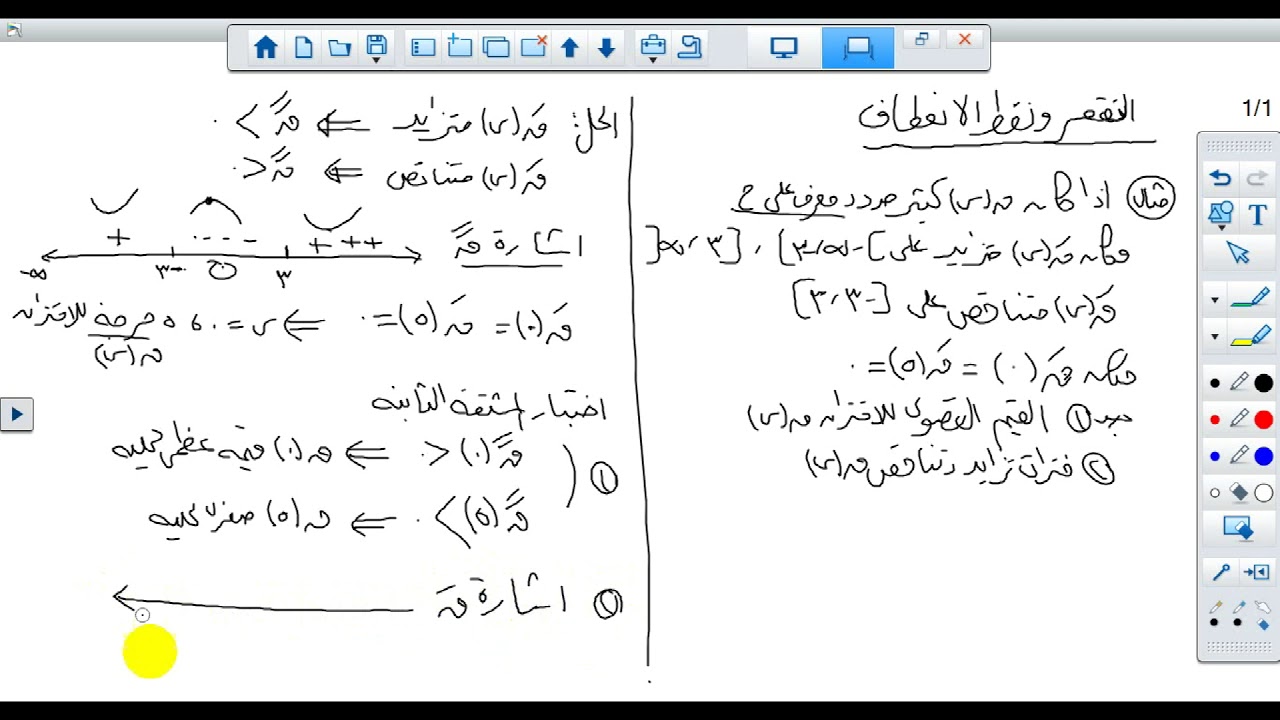 1/1
التقعر ونقط الانعطاف
مثال اذا كان ق(س) كثير حدود معرف على ح
وكان قَ(س) متزايد على ]-∞،-٣] ، [٣،∞[
قَ(س) متناقص على [-٣،٣]
وكان قَ(٠) = قَ(٥) = ٠
جد ① القيم القصوى للاقتران ق(س)
② فترات تزايد وتناقص ق(س)
الحل: قَ(س) متزايد ⇐ قًَ > ٠
قَ(س) متناقص ⇐ قًَ < ٠
اشارة قًَ
+ - - - - + + +
-∞ -٣ ٠ ٣
قَ(٠) = قَ(٥) = ٠ ⇐ س = ٠، ٥ حرجة للاقتران
ق(س)
اختبار المشتقة الثانية
① قًَ(٠) < ٠ ⇐ ق(٠) قيمة عظمى محلية
قًَ(٥) > ٠ ⇐ ق(٥) صغرى محلية
② اشارة قَ